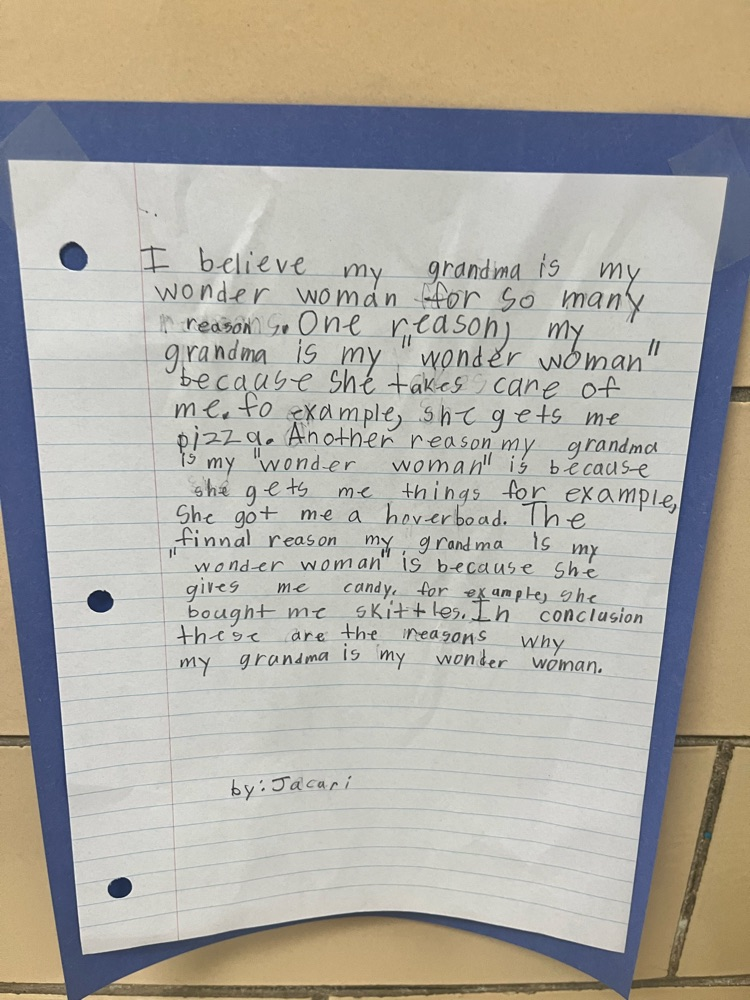 I believe my grandma is my
wonder woman for so many
reasons. One reason, my
grandma is my "wonder woman"
because she takes care of
me. fo example, she gets me
pizza. Another reason my grandma
is my "wonder woman" is because
she gets me things for example,
She got me a hoverboad. The
finnal reason my grandma is my
"wonder woman" is because she
gives me candy. for example, she
bought me skittles. In conclusion
these are the reasons why
my grandma is my wonder woman.
by: Jacari